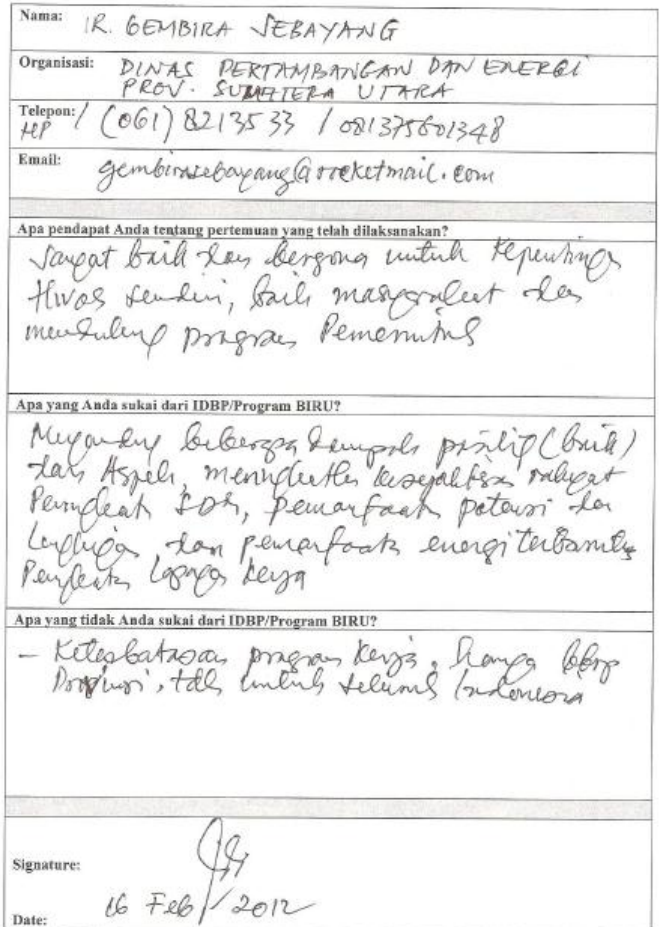 Nama: IR. GEMBIRA SEBAYANG
Organisasi: DINAS PERTAMBANGAN DAN ENERGI
PROV. SUMATERA UTARA
Telepon: / (061) 8213533 / 081375601348
HP
Email: gembirasebayang@rocketmail.com
Apa pendapat Anda tentang pertemuan yang telah dilaksanakan?
Sangat baik dan berguna untuk kepentingan
Hivos sendiri, baik masyarakat dan
mendukung program Pemerintah
Apa yang Anda sukai dari IDBP/Program BIRU?
beberapa dampak positip (baik)
dari Aspek, kesejahteraan rakyat
SDM, pemanfaatan potensi dan
dan pemanfaatan energi terbarukan
kerja
Apa yang tidak Anda sukai dari IDBP/Program BIRU?
- program kerja, hanya bbrp
Propinsi, tdk untuk seluruh Indonesia
Signature:
Date: 16 Feb / 2012